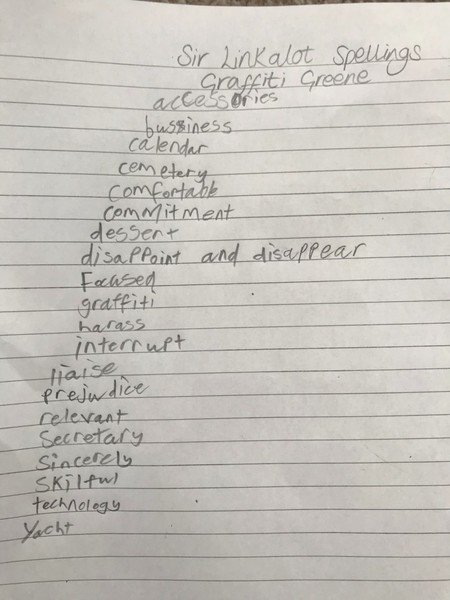 Sir Linkalot Spellings
Graffiti Greene
accessories
bussiness
calendar
cemetery
comfortable
commitment
dessert
disappoint and disappear
Focused
graffiti
harass
interrupt
liaise
prejudice
relevant
Secretary
Sincerely
Skilful
technology
Yacht